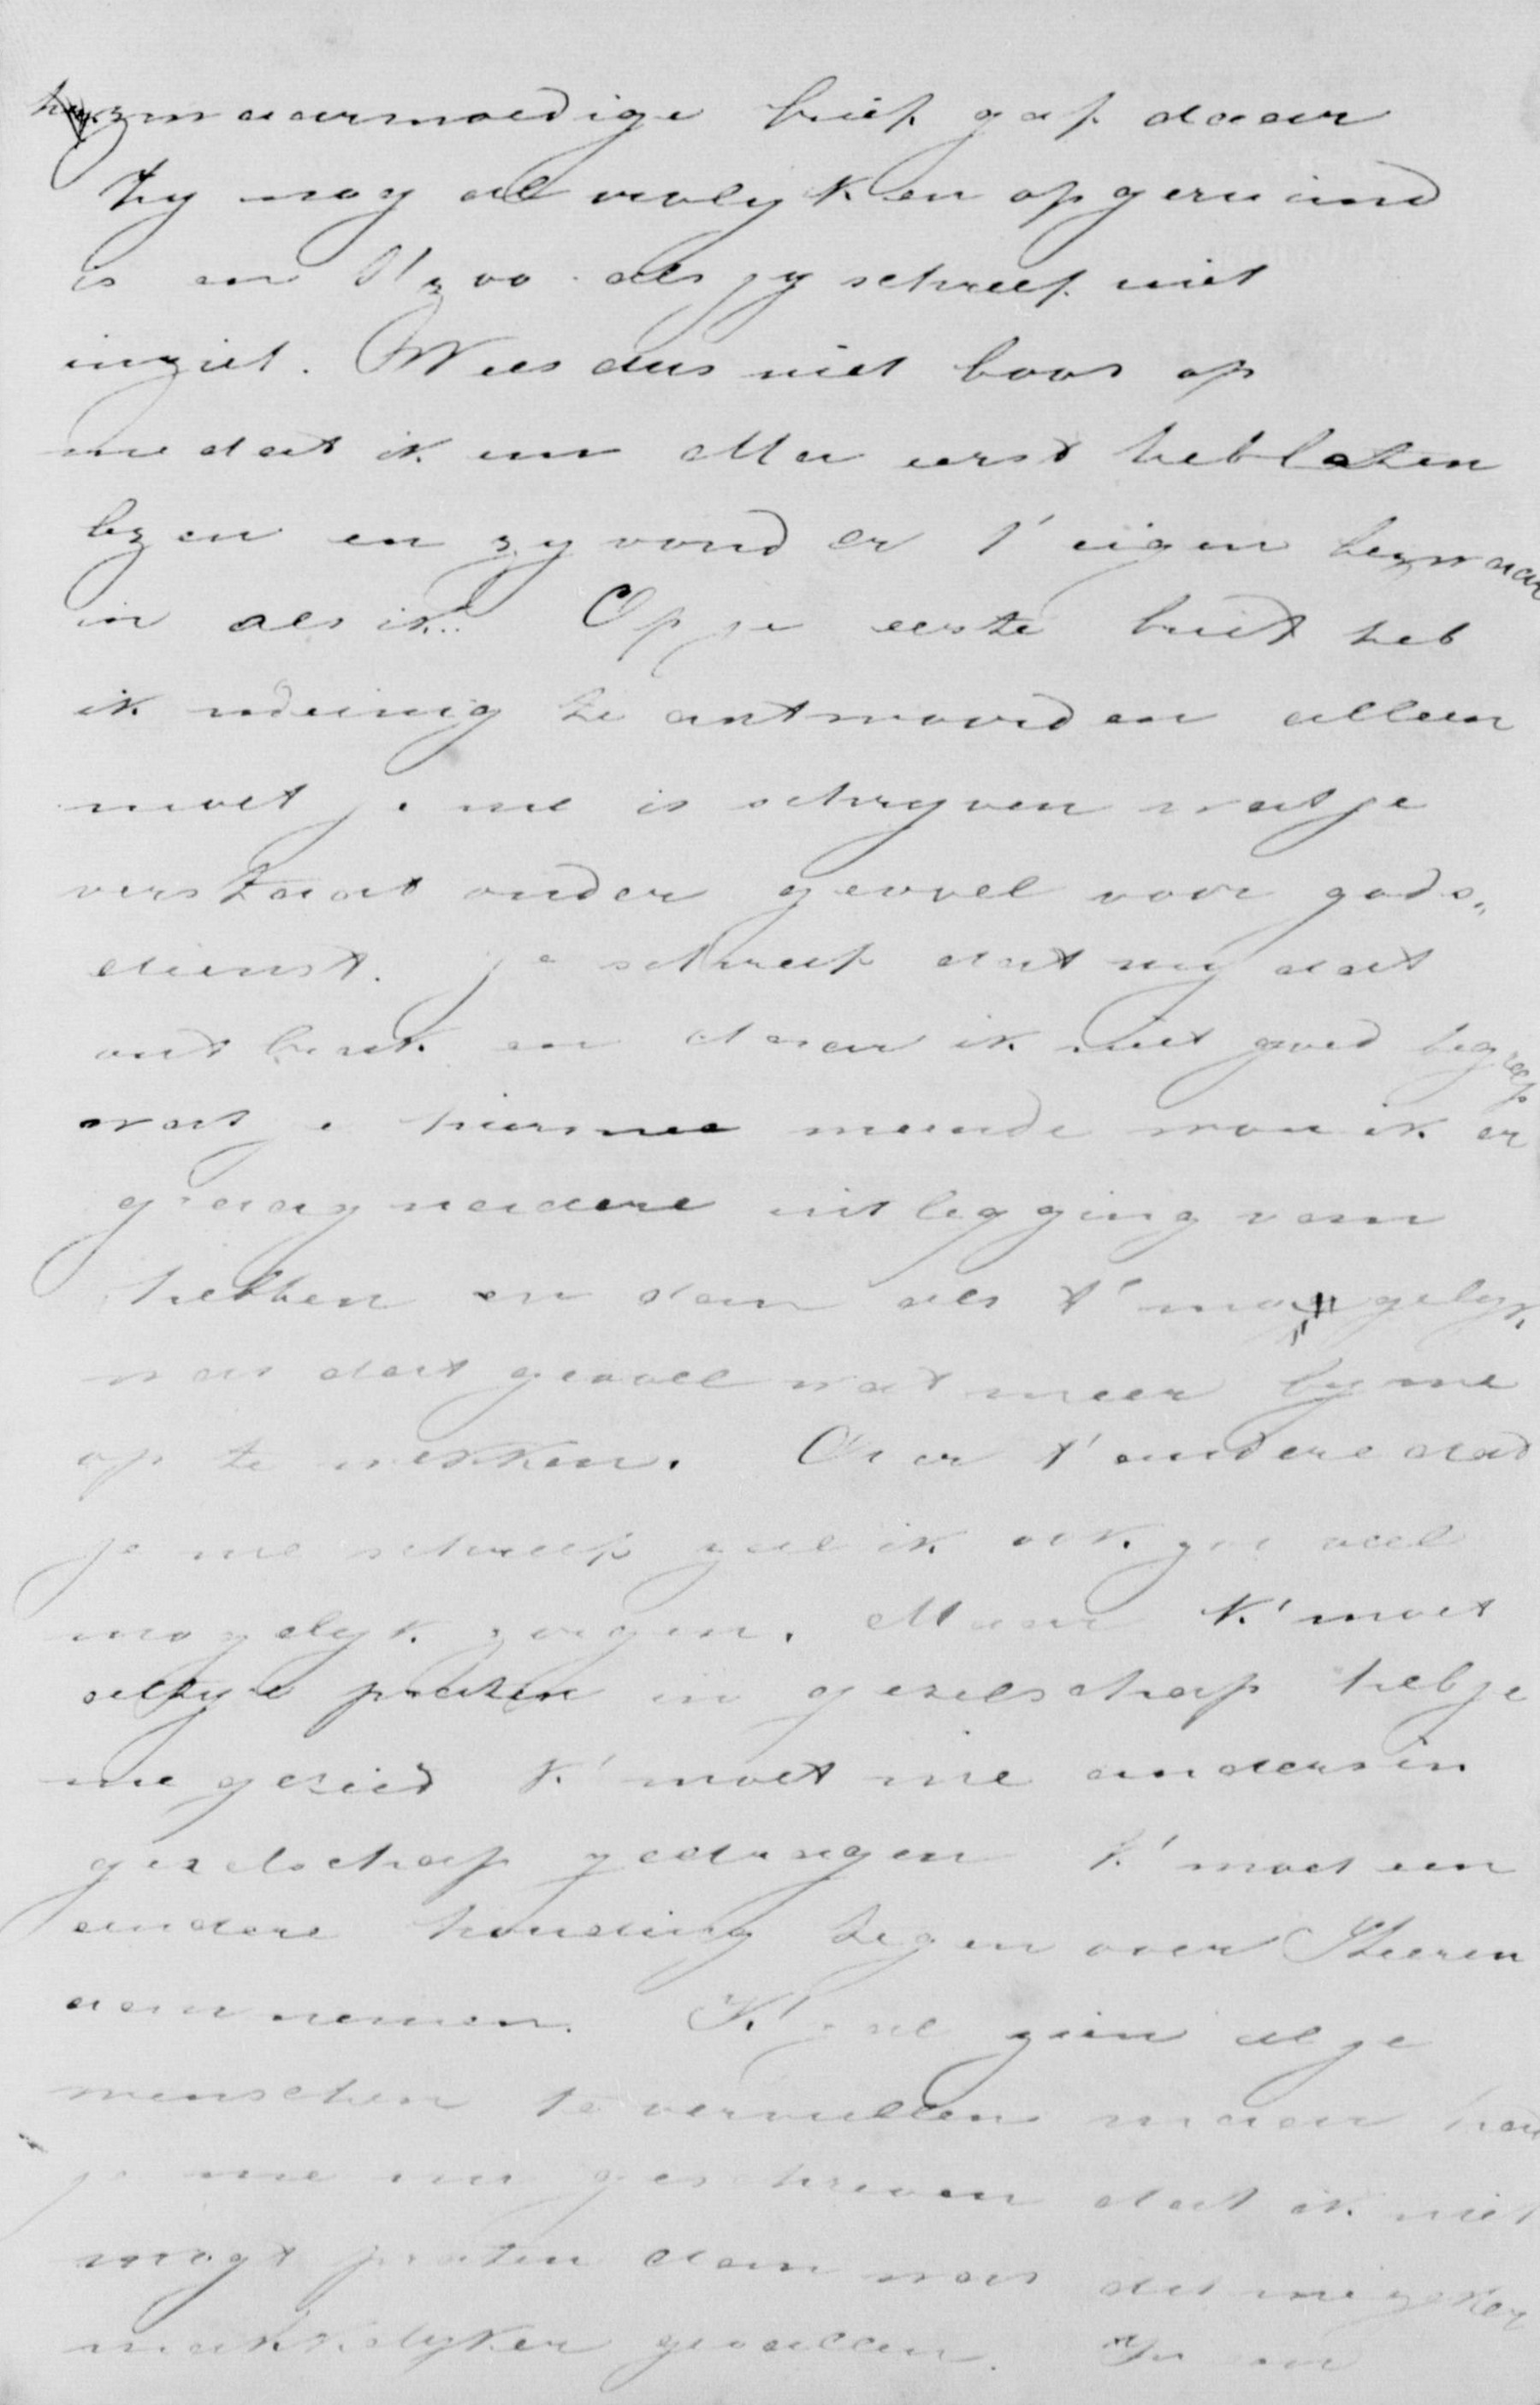 zwaarmoedige brief gaf daar
hy nog al vrolyk en opgeruimd
is en t' zoo als jy schreef niet
inziet. Wees dus niet boos op
me dat ik em Ma eerst heb laten
lezen en zy vond er t' eigen bezwaar
in als ik. Op je eerste brief heb
ik weinig te antwoorden alleen
moet je me is schryven wat je
verstaat onder gevoel voor gods„
dienst. Je schreef dat my dat
ontbrak en daar ik niet goed begreep
wat je hiermee meende wou ik er
graag nadere uitlegging van
hebben en dan als t' mogelyk
was dat gevoel wat meer by me
op te wekken. Over t' andere dat
je me schreef zal ik ook zoo veel
mogelyk zorgen. Maar k' moet
altyd praten in gezelschap heb je
me gezeid k' moet me anders in
gezelschap gedragen k' moet een
andere houding tegenover Heeren
aannemen. K' zal zien al je
menschen te vervullen maar had
je me nu geschreven dat ik niet
mogt praten dan was dat me zeker
makkelyker gevallen. In